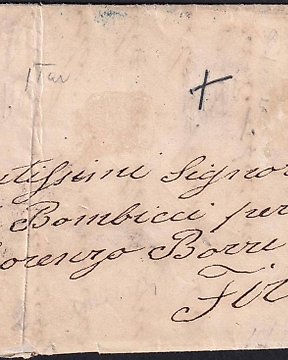 tissimi Signor
Bombicci per
Lorenzo Borri
Fir